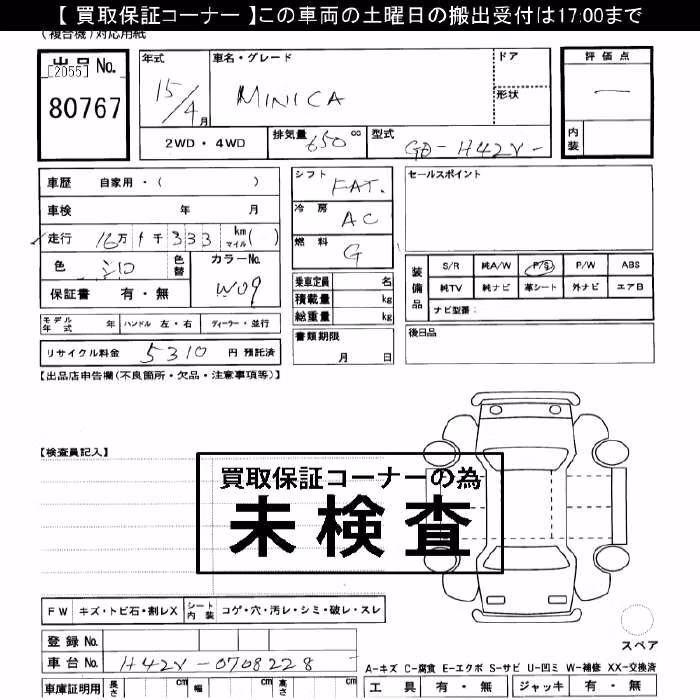 【 買取保証コーナー 】この車両の土曜日の搬出受付は17:00まで
(複合機)対応用紙
出品 No.
[2055]
80767
年式 15/4月
車名・グレード MINICA
ドア
形状
評価点 ー
内装
2WD・4WD 排気量 650 cc 型式 GD-H42V-
車歴 自家用・( )
車検 年 月
走行 16万 1千 333 km マイル ( )
色 シロ 色替 カラーNo. W09
保証書 有・無
シフト FAT.
冷房 AC
燃料 G
セールスポイント
装備品 S/R 純A/W P/S P/W ABS
純TV 純ナビ 革シート 外ナビ エアB
ナビ型番:
乗車定員 名
積載量 kg
総重量 kg
モデル年式 年 ハンドル 左・右 ディーラー・並行
書類期限 月 日
後日品
リサイクル料金 5310 円 預託済
【出品店申告欄(不良箇所・欠品・注意事項等)】
【検査員記入】
買取保証コーナーの為
未検査
FW キズ・トビ石・割レX シート内装 コゲ・穴・汚レ・シミ・破レ・スレ
登録 No.
車台 No. H42V-0708228
車庫証明用 長さ cm 幅 cm 高さ cm
スペア
A-キズ C-腐食 E-エクボ S-サビ U-凹ミ W-補修 XX-交換済
工具 有・無 ジャッキ 有・無